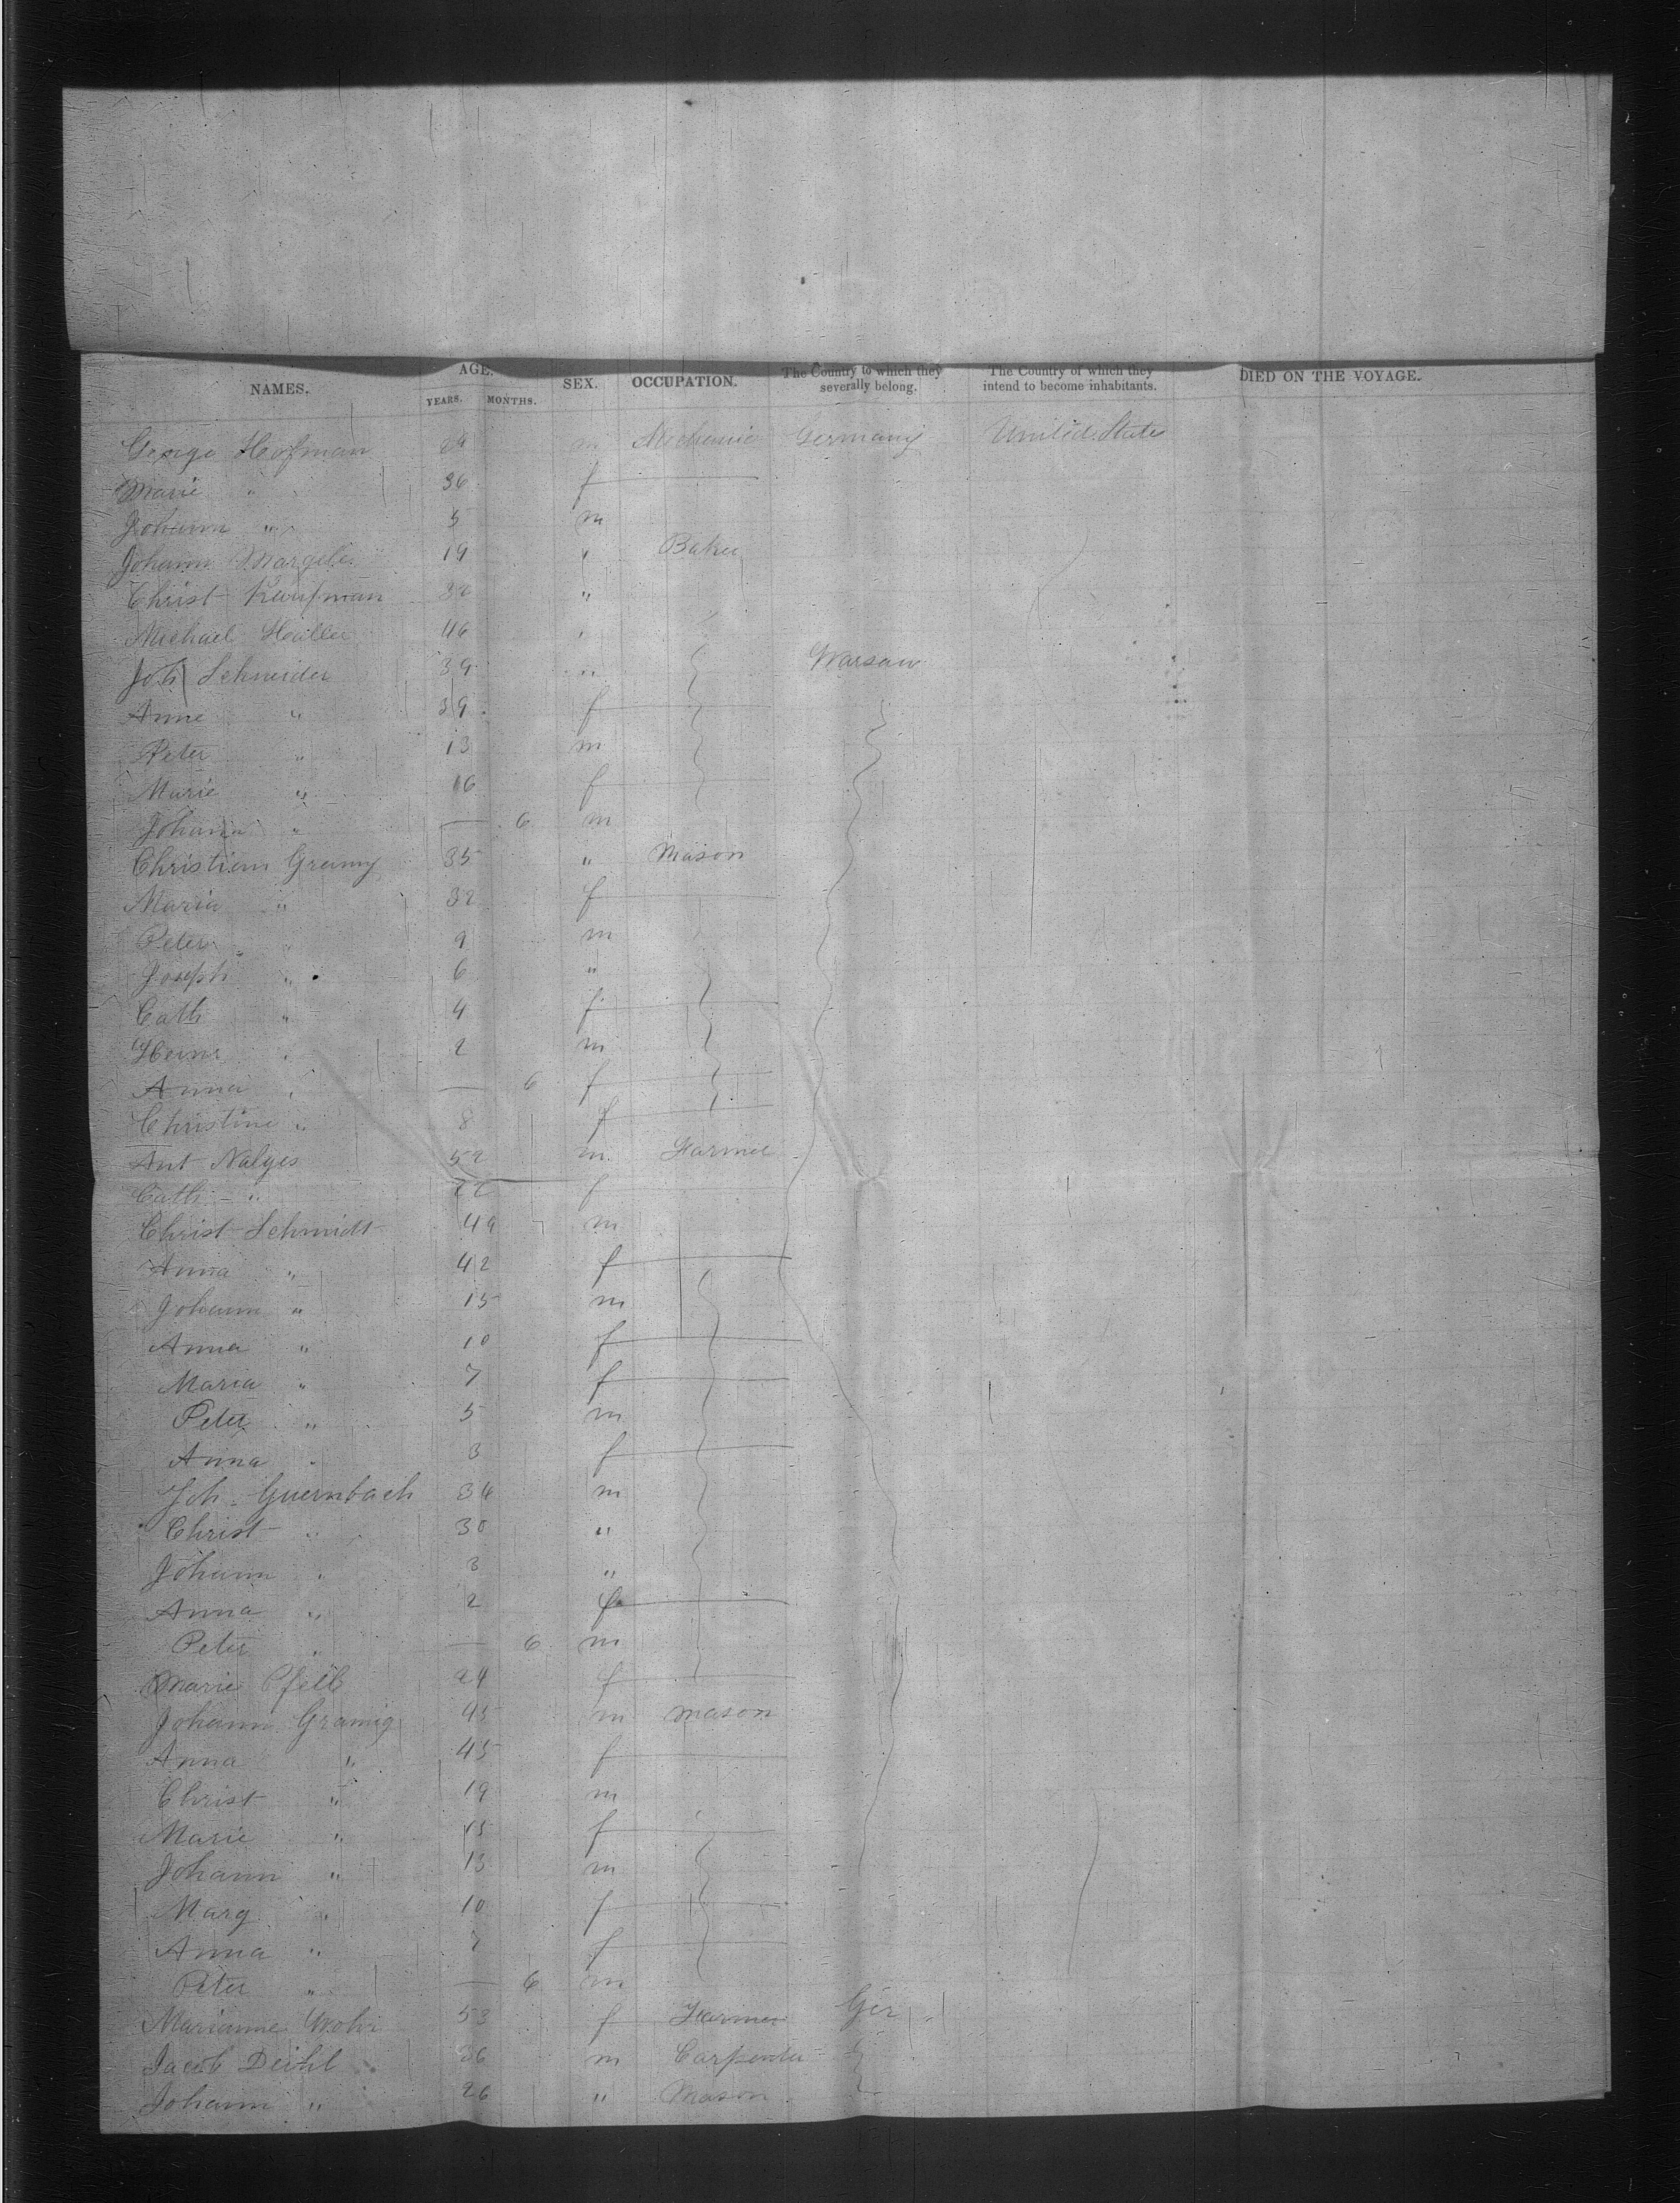 NAMES. AGE. SEX. OCCUPATION. The Country to which they severally belong. The Country of which they intend to become inhabitants. DIED ON THE VOYAGE.
YEARS. MONTHS.
George Hofman m Mechanic Germany United States
Marie " 36 f
Johann " 5 m
Johann 19 " Baker
Christ Kaufman "
Michael 46 "
Joh Schneider 39 " Warsaw
Anne " 39 f
Peter " 13 m
Marie " 16 f
Johann " — 6 m
Christian Gramg 35 " Mason
Maria " 32 f
Peter " 9 m
Joseph " 6 "
Cath " 4 f
Heinr " 2 m
Anna " — 6 f
Christine " 8 f
Ant Nalges 52 m Farmer
Cath " f
Christ Schmidt 49 m
Anna " 42 f
Johann " 15 m
Anna " 10 f
Maria " 7 f
Peter " 5 m
Anna " 3 f
Joh. Guernbach 34 m
Christ " 30 "
Johann " 3 "
Anna " 2 f
Peter " — 6 m
Marie 24 f
Johann Gramig 45 m mason
Anna " 45 f
Christ " 19 m
Marie " 15 f
Johann " 13 m
Marg " 10 f
Anna " 7 f
Peter " — 6 m
Marianne 53 f Farmer Ger
Jacob Deihl 36 m Carpenter
Johann " 26 " Mason